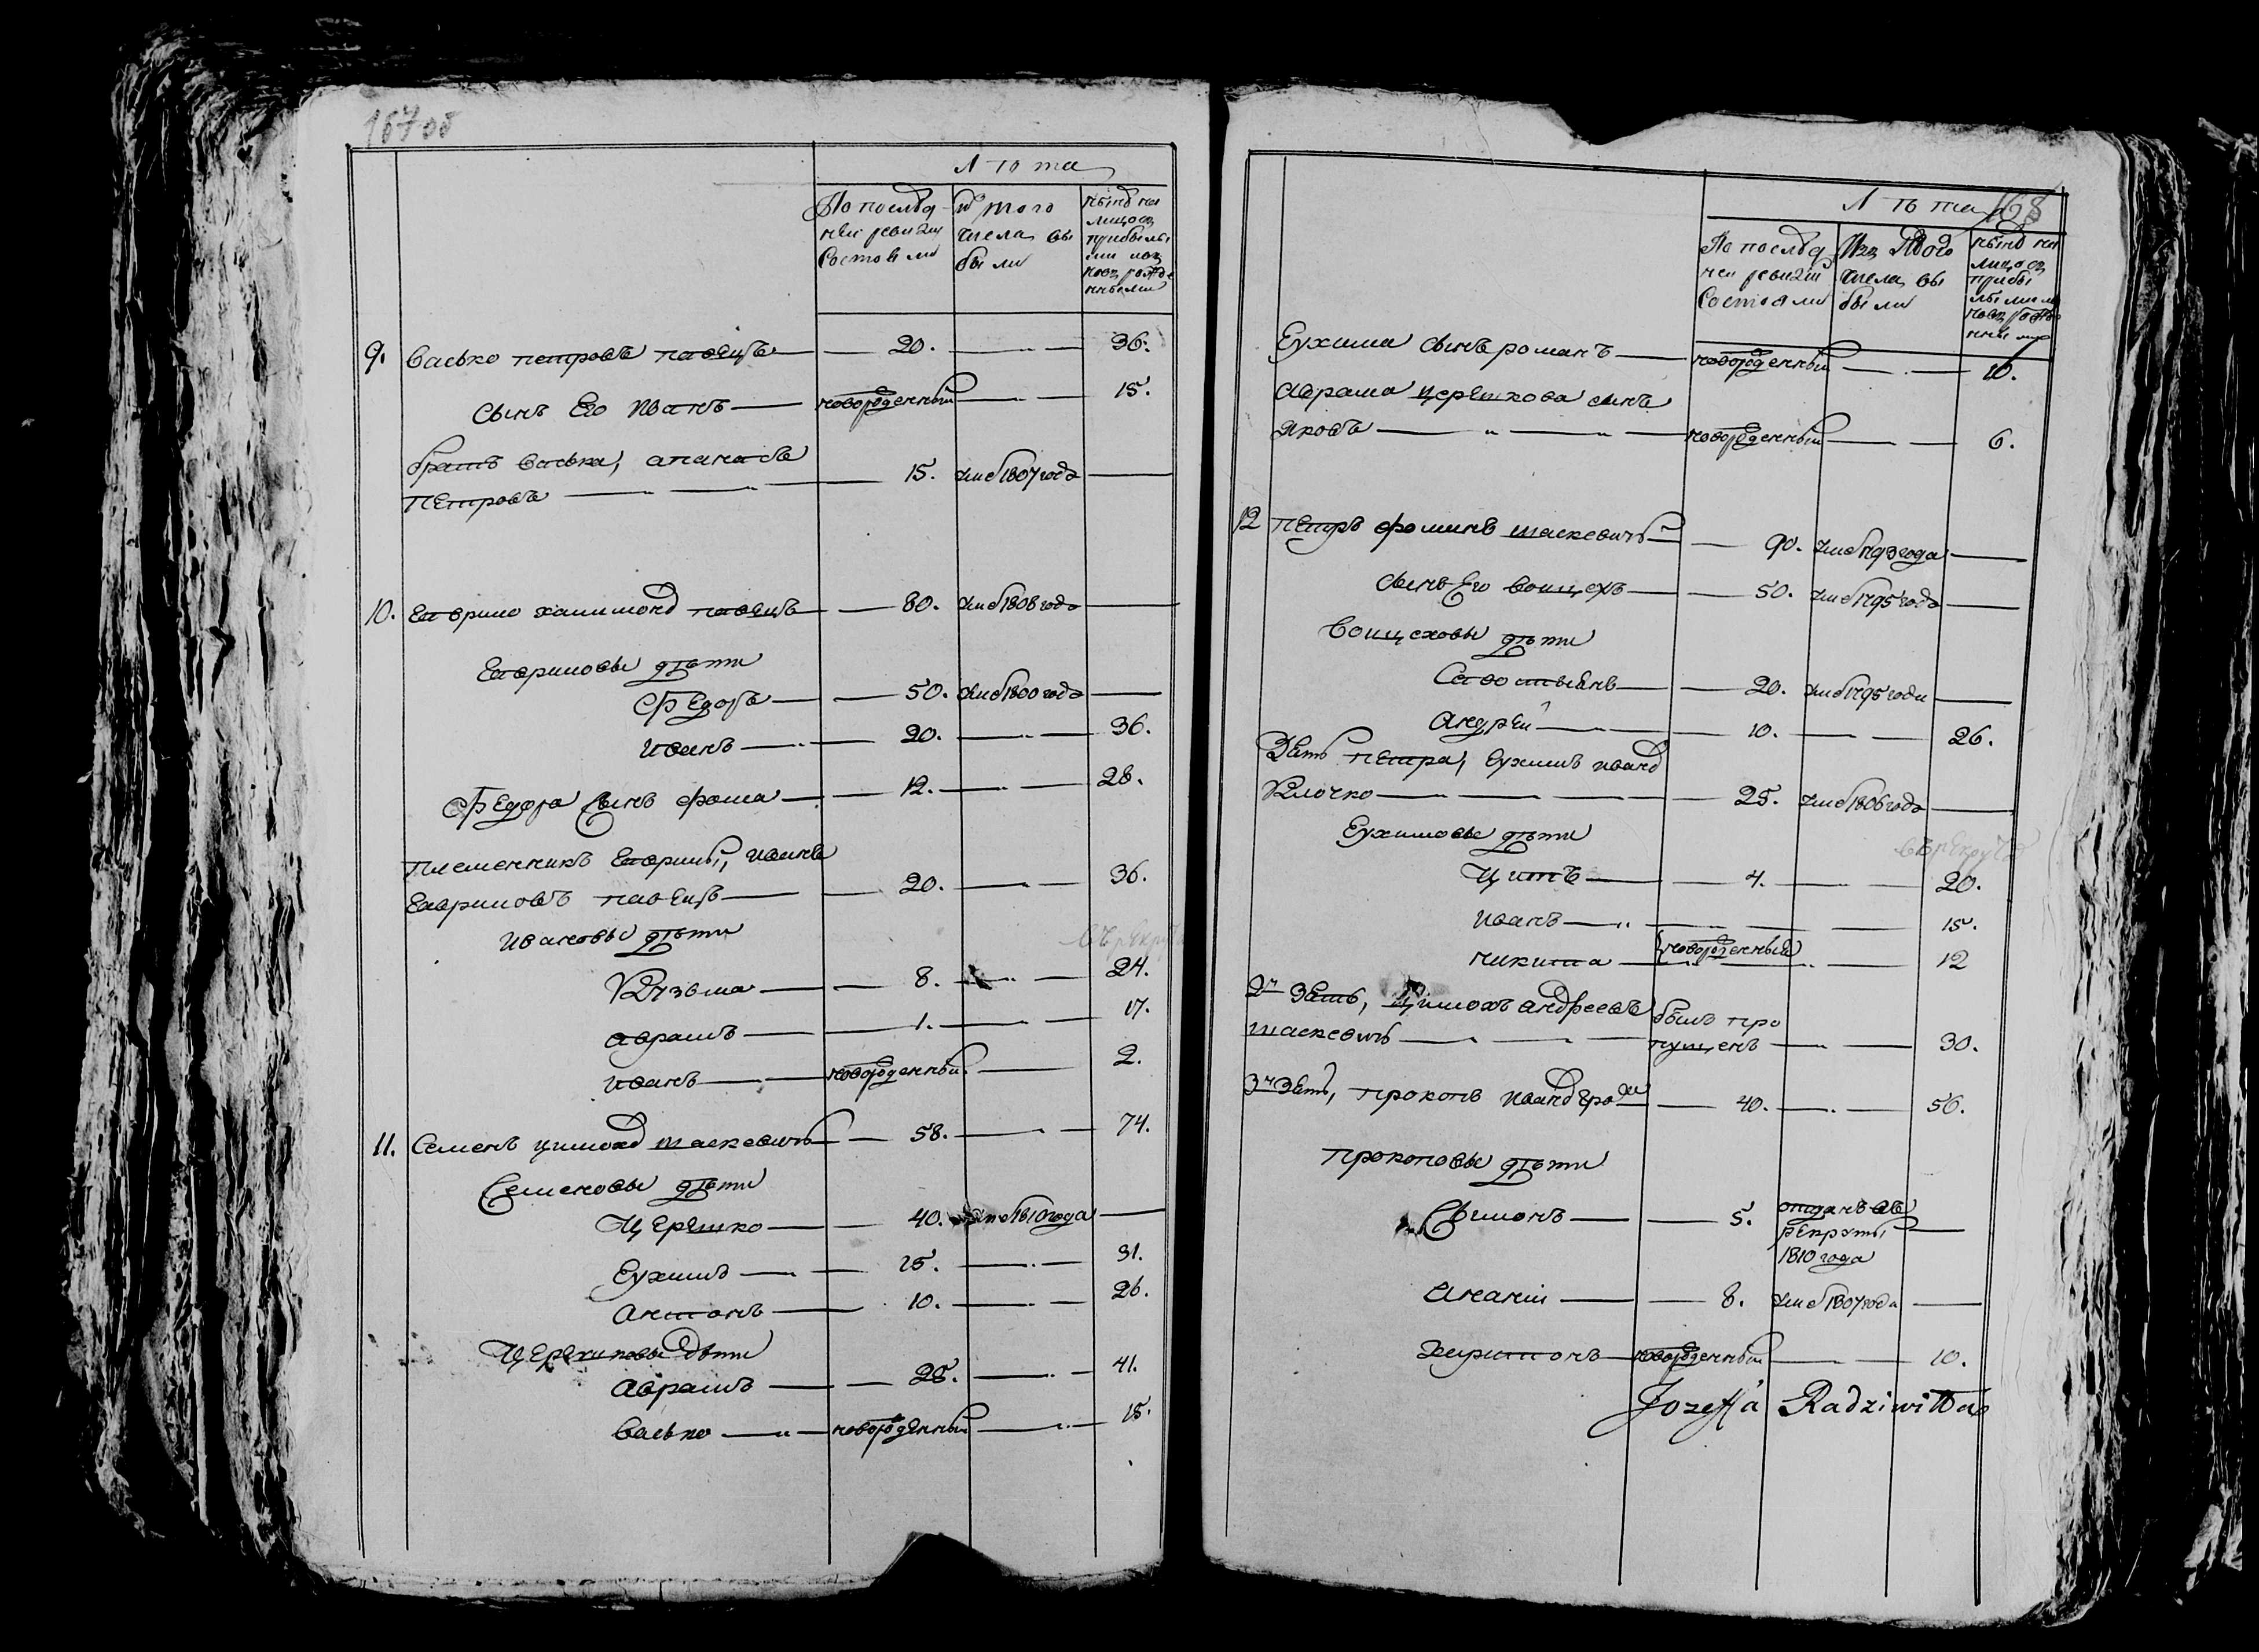 167 об
Лѣта
По послѣд
ней ревизіи
Состояли
Изъ того
числа вы
были
нынѣ на
лицо съ
прибылы
ми изъ
новорожде
нными
9. Васько петровъ павецъ 20. 36.
сынъ Его Иванъ новорожденный 15.
братъ Васька, апанасъ
Петровъ 15. Уме 1807 года
10. Гаврило халимоно павецъ 80. Уме 1808 года
Гавриловы дѣти
Федоръ 50. Уме 1800 года
иванъ 20. 36.
Федора Сынъ фома 12. 28.
племенникъ Гаврилы, иванъ
Гавриловъ павецъ 20. 36.
ивановы дѣти
въ рекруты
Кузьма 8. 24.
аврамъ 1. 17.
иванъ новорожденный 2.
11. Семенъ цимохо шаскевичъ 58. 74.
Семеновы дѣти
Церешко 40. Уме 1810 года
Еухимъ 15. 31.
антонъ 10. 26.
Церешковы дѣти
аврамъ 25. 41.
Васько новорожденный 15.
168
Лѣта
По послѣд
ней ревизіи
Состояли
Изъ Того
числа вы
были
нынѣ на
лицо съ
прибы
лыми и
новорожде
нными
Еухима сынъ романъ новорожденный 10.
аврама церешкова сынъ
яковъ новорожденный 6.
12 петръ фоминъ шаскевичъ 90. Уме 1793 года
сынъ Его Войцехъ 50. Уме 1795 года
Войцеховы дѣти
Савостьянъ 20. Уме 1795 года
андрей 10. 26.
Зять петра, Еухимъ ивано
Клочко 25. Уме 1806 года
Еухимовы дѣти
въ рекруты
Цитъ 4. 20.
иванъ 15.
никита новорожденный 12
2й Зять, Цимохъ андреевъ былъ про
шаскевичъ пущенъ 30.
3й Зять, прокопъ ивано 40. 56.
прокоповы дѣти
Сымонъ 5. отданъ въ
рекруты
1810 года
ананій 8. Уме 1807 года
харитонъ новорожденный 10.
Jozeffa Radziwiłłowa